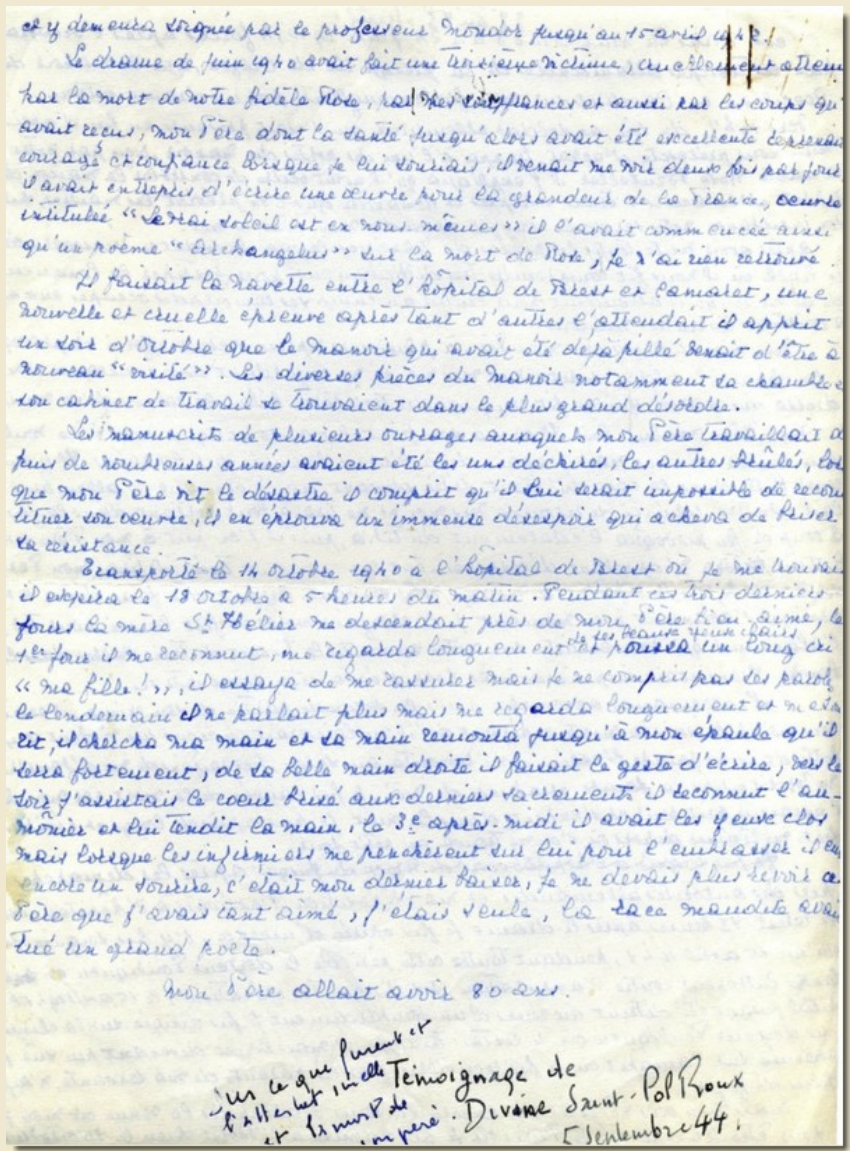 et y demeura soignée par le professeur Mondor jusqu'au 15 avril 1942.
Le drame de Juin 1940 avait fait une troisième victime, cruellement attein
par la mort de notre fidèle Rose, par mes souffrances et aussi par les coups qu'
avait reçus, mon Père dont la santé jusqu'alors avait été excellente reprenait
courage et confiance lorsque je lui souriais, il venait me voir deux fois par jour
il avait entrepris d'écrire une œuvre pour la grandeur de la France, œuvre
intitulée "Le vrai soleil est en nous-mêmes" il l'avait commencée ainsi
qu'un poème "Archangelus" sur la mort de Rose, je n'ai rien retrouvé.
Il faisait la navette entre l'hôpital de Brest et Camaret, une
nouvelle et cruelle épreuve après tant d'autres l'attendait il apprit
un soir d'octobre que le manoir qui avait été déjà pillé venait d'être à
nouveau "visité". Les diverses pièces du Manoir notamment sa chambre e
son cabinet de travail se trouvaient dans le plus grand désordre.
Les manuscrits de plusieurs ouvrages auxquels mon Père travaillait d
puis de nombreuses années avaient été les uns déchirés, les autres brûlés, lors
que mon Père vit le désastre il comprit qu'il lui serait impossible de recons
tituer son œuvre, il en éprouva un immense désespoir qui acheva de briser
sa résistance.
Transporté le 14 octobre 1940 à l'hôpital de Brest où je me trouvais
il expira le 18 octobre à 5 heures du matin. Pendant ces trois derniers
jours la mère St Hélier me descendait près de mon Père bien-aimé, le
1er jour il me reconnut, me regarda longuement de ses beaux yeux clairs et poussa un long cri
« ma fille ! », il essaya de me rassurer mais je ne compris pas ses parol
le lendemain il ne parlait plus mais me regarda longuement et me sou
rit, il chercha ma main et sa main remonta jusqu'à mon épaule qu'il
serra fortement, de sa belle main droite il faisait le geste d'écrire, vers le
soir j'assistais le coeur brisé aux derniers sacrements il reconnut l'au-
mônier et lui tendit la main, le 3e après-midi il avait les yeux clos
mais lorsque les infirmiers me penchèrent sur lui pour l'embrasser il eu
encore un sourire, c'était mon dernier baiser, je ne devais plus revoir ce
Père que j'avais tant aimé, j'étais seule, la race maudite avai
tué un grand poète.
Mon Père allait avoir 80 ans.
Sur ce que furent et
l'attentat
et la mort de
mon père. Témoignage de
Divine Saint-Pol Roux
5 Septembre 44.